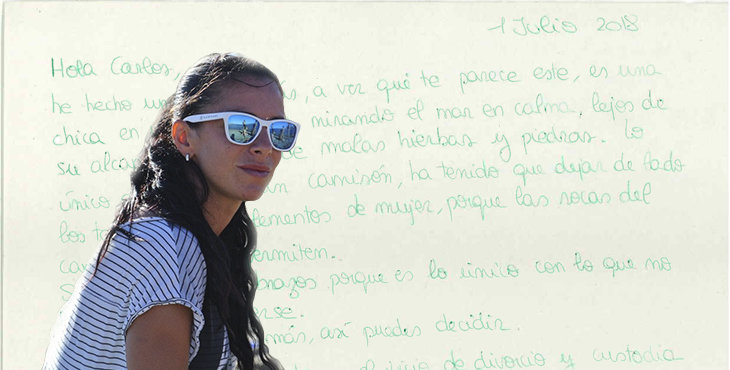 1 Julio 2018
Hola Carlos, ás, a ver qué te parece este, es una
he hecho un mirando el mar en calma, lejos de
chica en de malas hierbas y piedras. Lo
su alca un camisón, ha tenido que dejar de lado
único lementos de mujer, porque las rocas del
los ta ermiten.
ca nazos porque es lo único con lo que no
S rse.
más, así puedes decidir.
juicio de divorcio y custodia